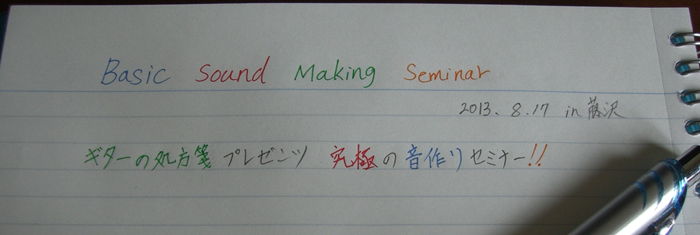 Basic Sound Making Seminar
2013. 8.17 in 藤沢
ギターの処方箋プレゼンツ 究極の音作りセミナー!!